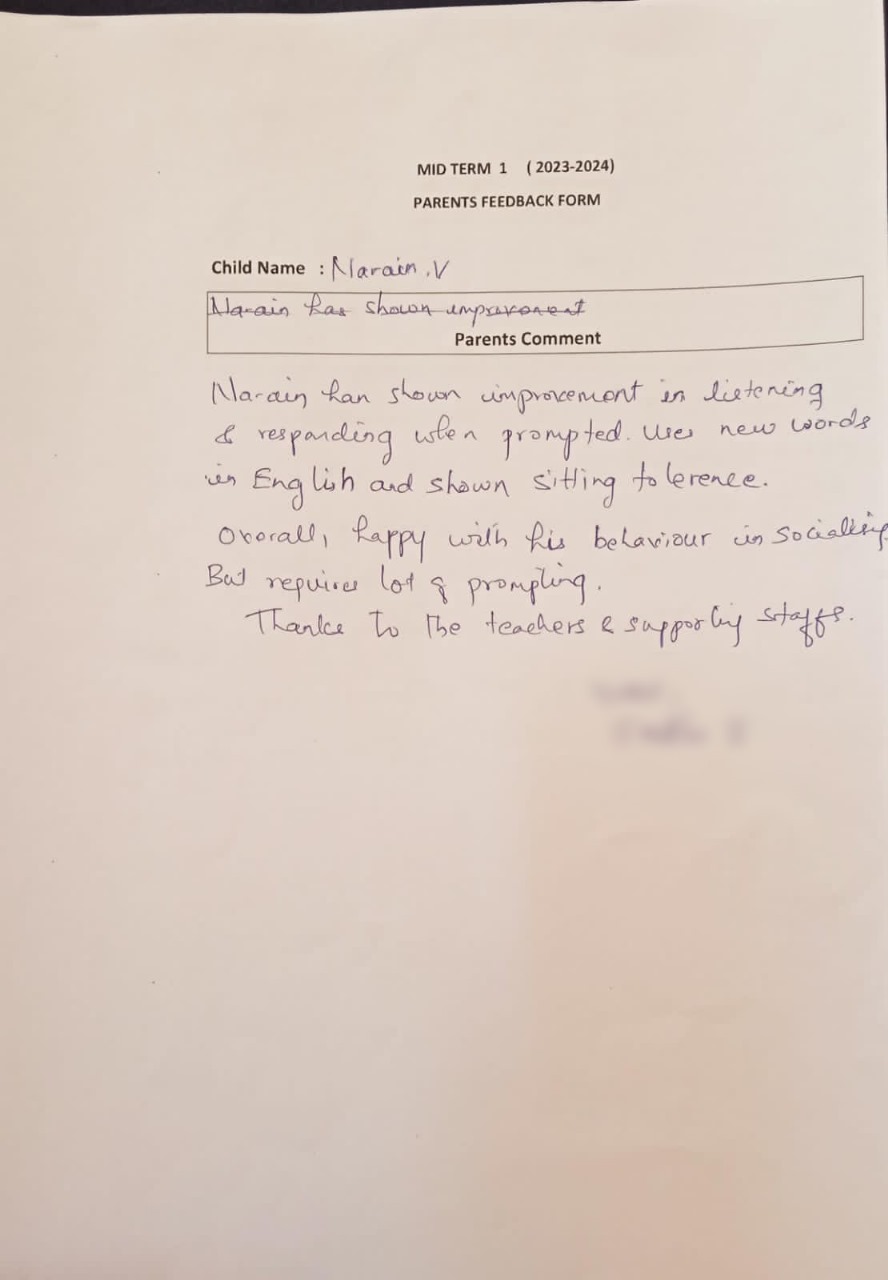 MID TERM 1 (2023-2024)
PARENTS FEEDBACK FORM
Child Name : Narain .V
Narain has shown improvement
Parents Comment
Narain has shown improvement in listening
& responding when prompted. Uses new words
in English and shown sitting tolerence.
Overall, happy with his behaviour in socialising
But requires lot of prompting.
Thanks to the teachers & supporting staffs.